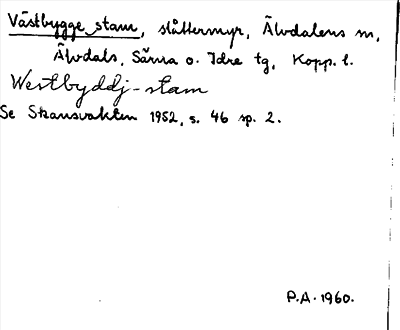 Västbygge stam, slåttermyr, Älvdalens m,
Älvdals, Särna o. Idre tg, Kopp. l.
Westbyddj-stam
Se Skansvakten 1952, s. 46 sp. 2.
P.A. 1960.